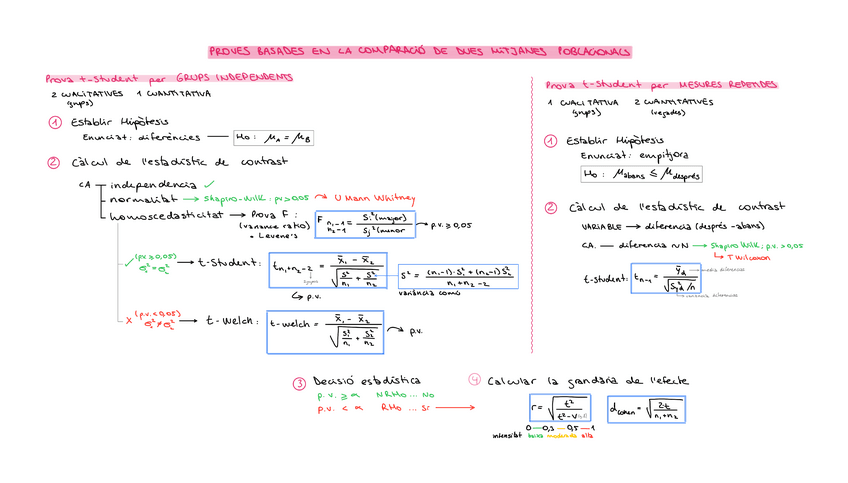 PROVES BASADES EN LA COMPARACIÓ DE DUES MITJANES POBLACIONALS
Prova t-Student per GRUPS INDEPENDENTS
2 QUALITATIVES 1 QUANTITATIVA
(grups)
① Establir Hipòtesis
Enunciat: diferències — H₀: μA = μB
② Càlcul de l'estadístic de contrast
CA independència ✓
normalitat → Shapiro-Wilk; p.v > 0,05 → U Mann Whitney
homoscedasticitat → Prova F:
(variance ratio)
= Levene's
F n₁-1 = Si² (major)
n₂-1 Sj² (menor
→ p.v. ≥ 0,05
✓ (p.v ≥ 0,05)
σ₁² = σ₂²
→ t-Student: t n₁+n₂-2 = x̄₁ - x̄₂ / √(S²/n₁ + S²/n₂)
S² = (n₁-1)·S₁² + (n₂-1) S₂² / n₁+n₂-2
variància comú
↳ p.v.
X (p.v. < 0,05)
σ₁² ≠ σ₂²
→ t-Welch: t-welch = x̄₁ - x̄₂ / √(S₁²/n₁ + S₂²/n₂) → p.v.
Prova t-Student per MESURES REPETIDES
1 QUALITATIVA 2 QUANTITATIVES
(grups) (vegades)
① Establir Hipòtesis
Enunciat: empitjora
H₀: μabans ≤ μdesprés
② Càlcul de l'estadístic de contrast
VARIABLE → diferència (després - abans)
CA. — diferència ∼N → Shapiro Wilk; p.v. > 0,05
↳ T Wilcoxon
t-student: t n-1 = ȳd / √(S²d /n)
mitja diferències
variància diferències
③ Decisió estadística
p.v. ≥ α NRH₀ ... No
p.v. < α RH₀ ... Sí →
④ Calcular la grandària de l'efecte
r = √(t² / t² - v)
d cohen = √(2t / n₁+n₂)
0 — 0,3 — 0,5 — 1
intensitat baixa moderada alta